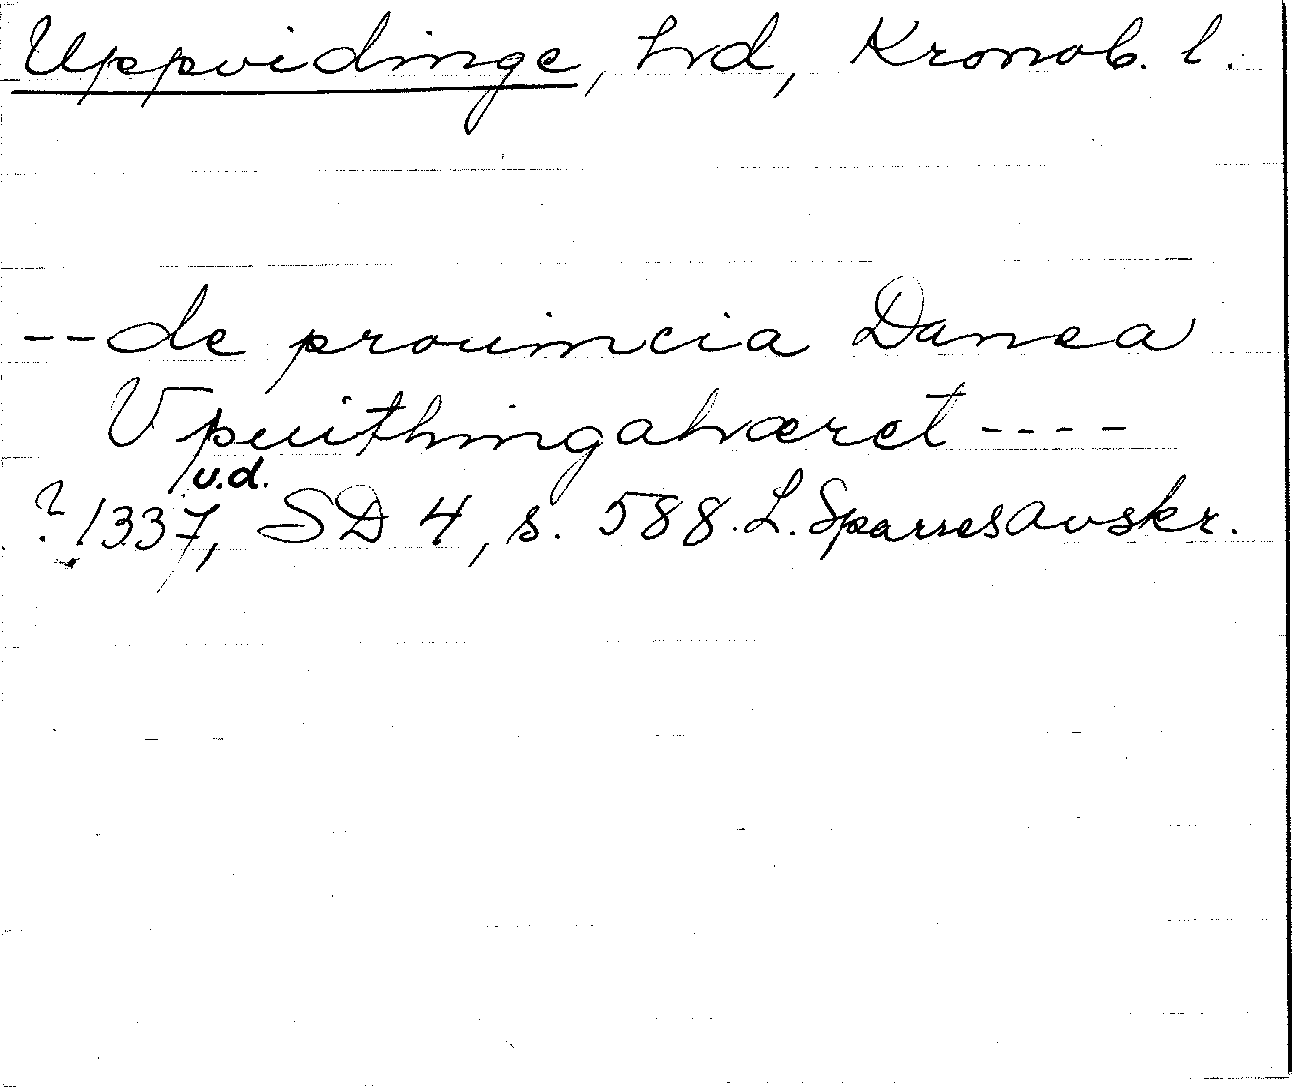 Uppvidinge, hrd, Kronob. l.
--de prouincia Danea
Vpuithingahæret ----
u.d.
? 1337, SD 4, s. 588. L. Sparres avskr.